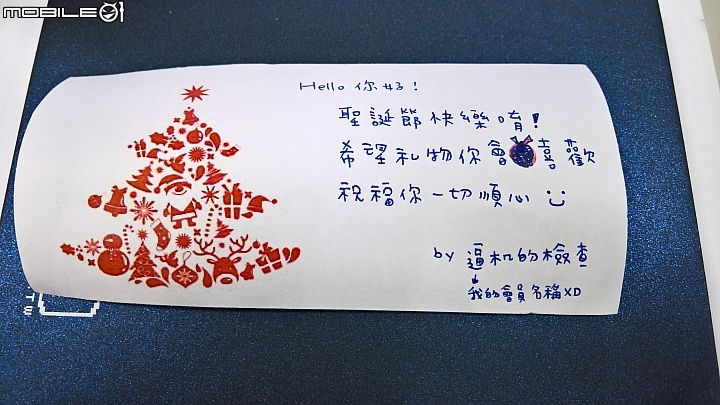 MOBILE01
Hello 你好!
聖誕節快樂唷!
希望禮物你會喜歡
祝福你一切順心
by 逼机的檢查
我的會員名稱XD